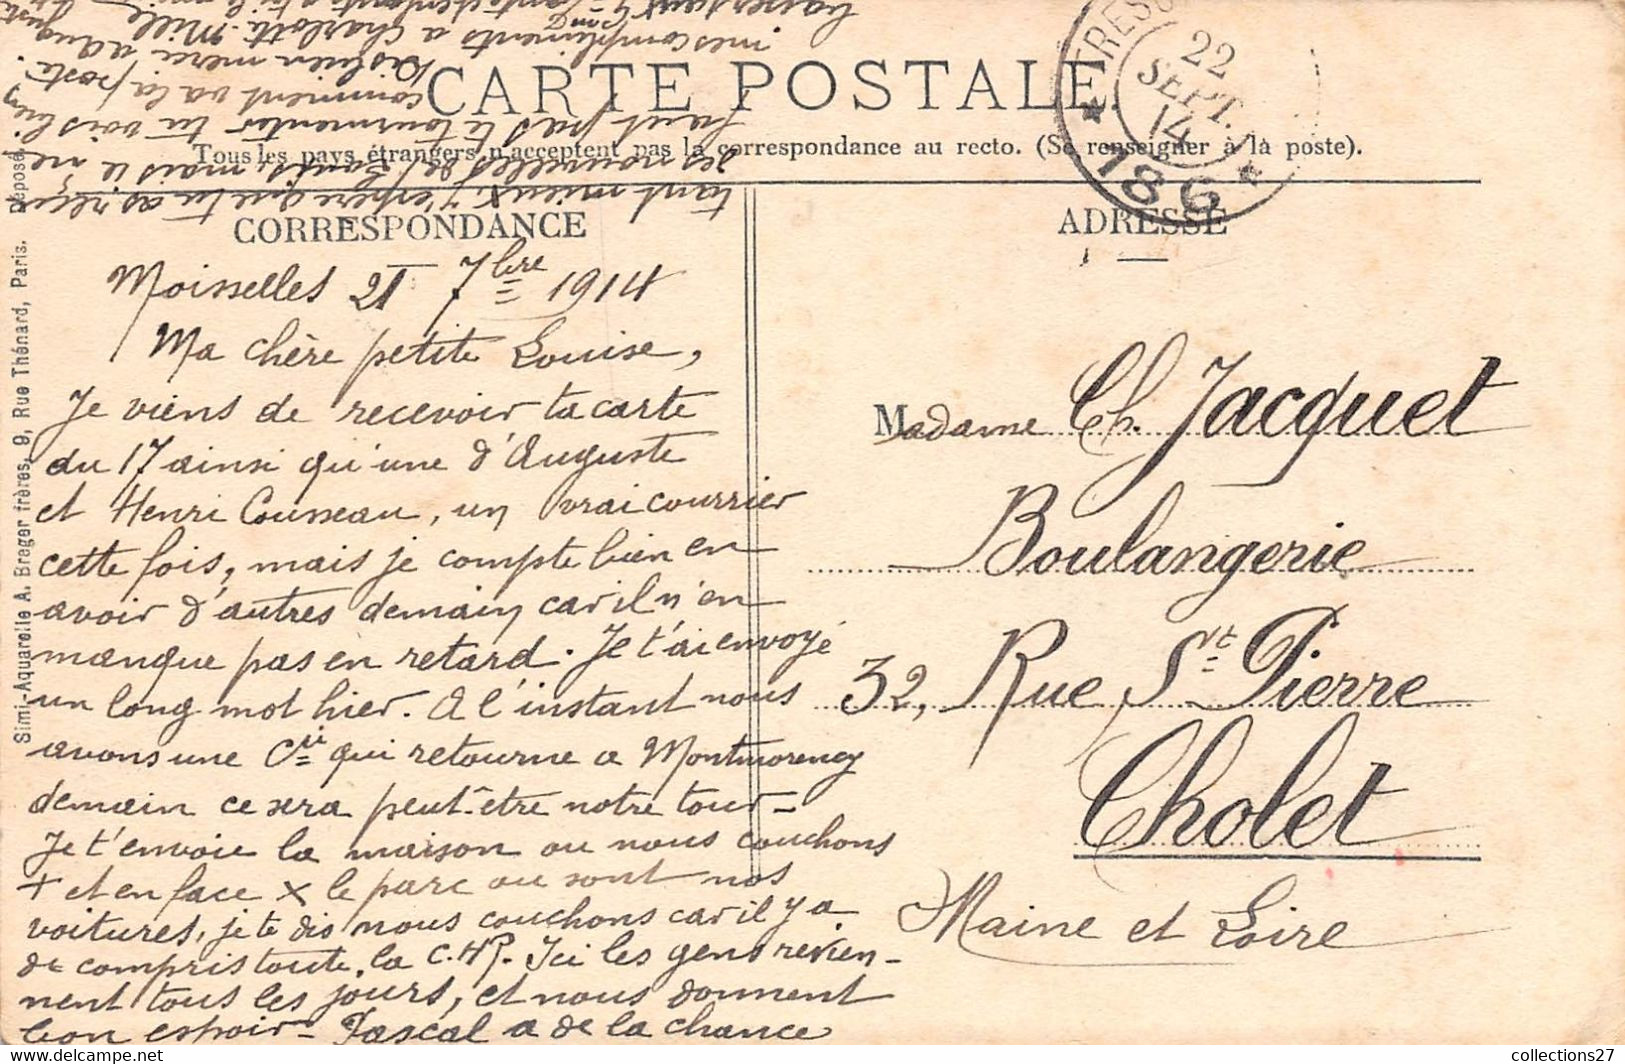 CARTE POSTALE
Tous les pays étrangers n'acceptent pas la correspondance au recto. (Se renseigner à la poste).
CORRESPONDANCE
ADRESSE
22
SEPT.
14
186
Moisselles 21 7bre 1914
Ma chère petite Louise,
Je viens de recevoir ta carte
du 17 ainsi qu'une d'Auguste
et Henri Cousseau, un vrai courrier
cette fois, mais je compte bien en
avoir d'autres demain car il n'en
manque pas en retard. Je t'ai envoyé
un long mot hier. A l'instant nous
avons une Cie qui retourne a Montmorency
demain ce sera peut-être notre tour-
Je t'envoie la maison ou nous couchons
+ et en face x le parc ou sont nos
voitures, je te dis nous couchons car il y a
de compris toute la C.HR. Ici les gens revien-
nent tous les jours, et nous donnent
bon espoir- Pascal a de la chance
tant mieux, j'espère que tu as reçu
des nouvelles de Louis, mais il ne
faut pas te tourmenter tu vois bien
comment va la poste.
Dis bien merci a Auguste
mes compliments a Charlotte. Mille
baisers aux
Madame Ch. Jacquet
Boulangerie
32, Rue St Pierre
Cholet
Maine et Loire
Simi-Aquarelle A. Breger frères, 9, Rue Thénard, Paris. Déposé
collections27